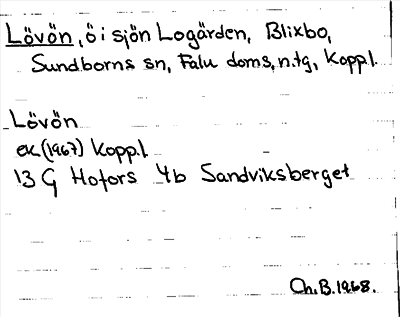 Lövön, ö i sjön Logärden, Blixbo,
Sundborns sn, Falu doms, n.tg, Koppl.
Lövön
ek (1967) Koppl.
13 G Hofors 4b Sandviksberget
Ch.B.1968.